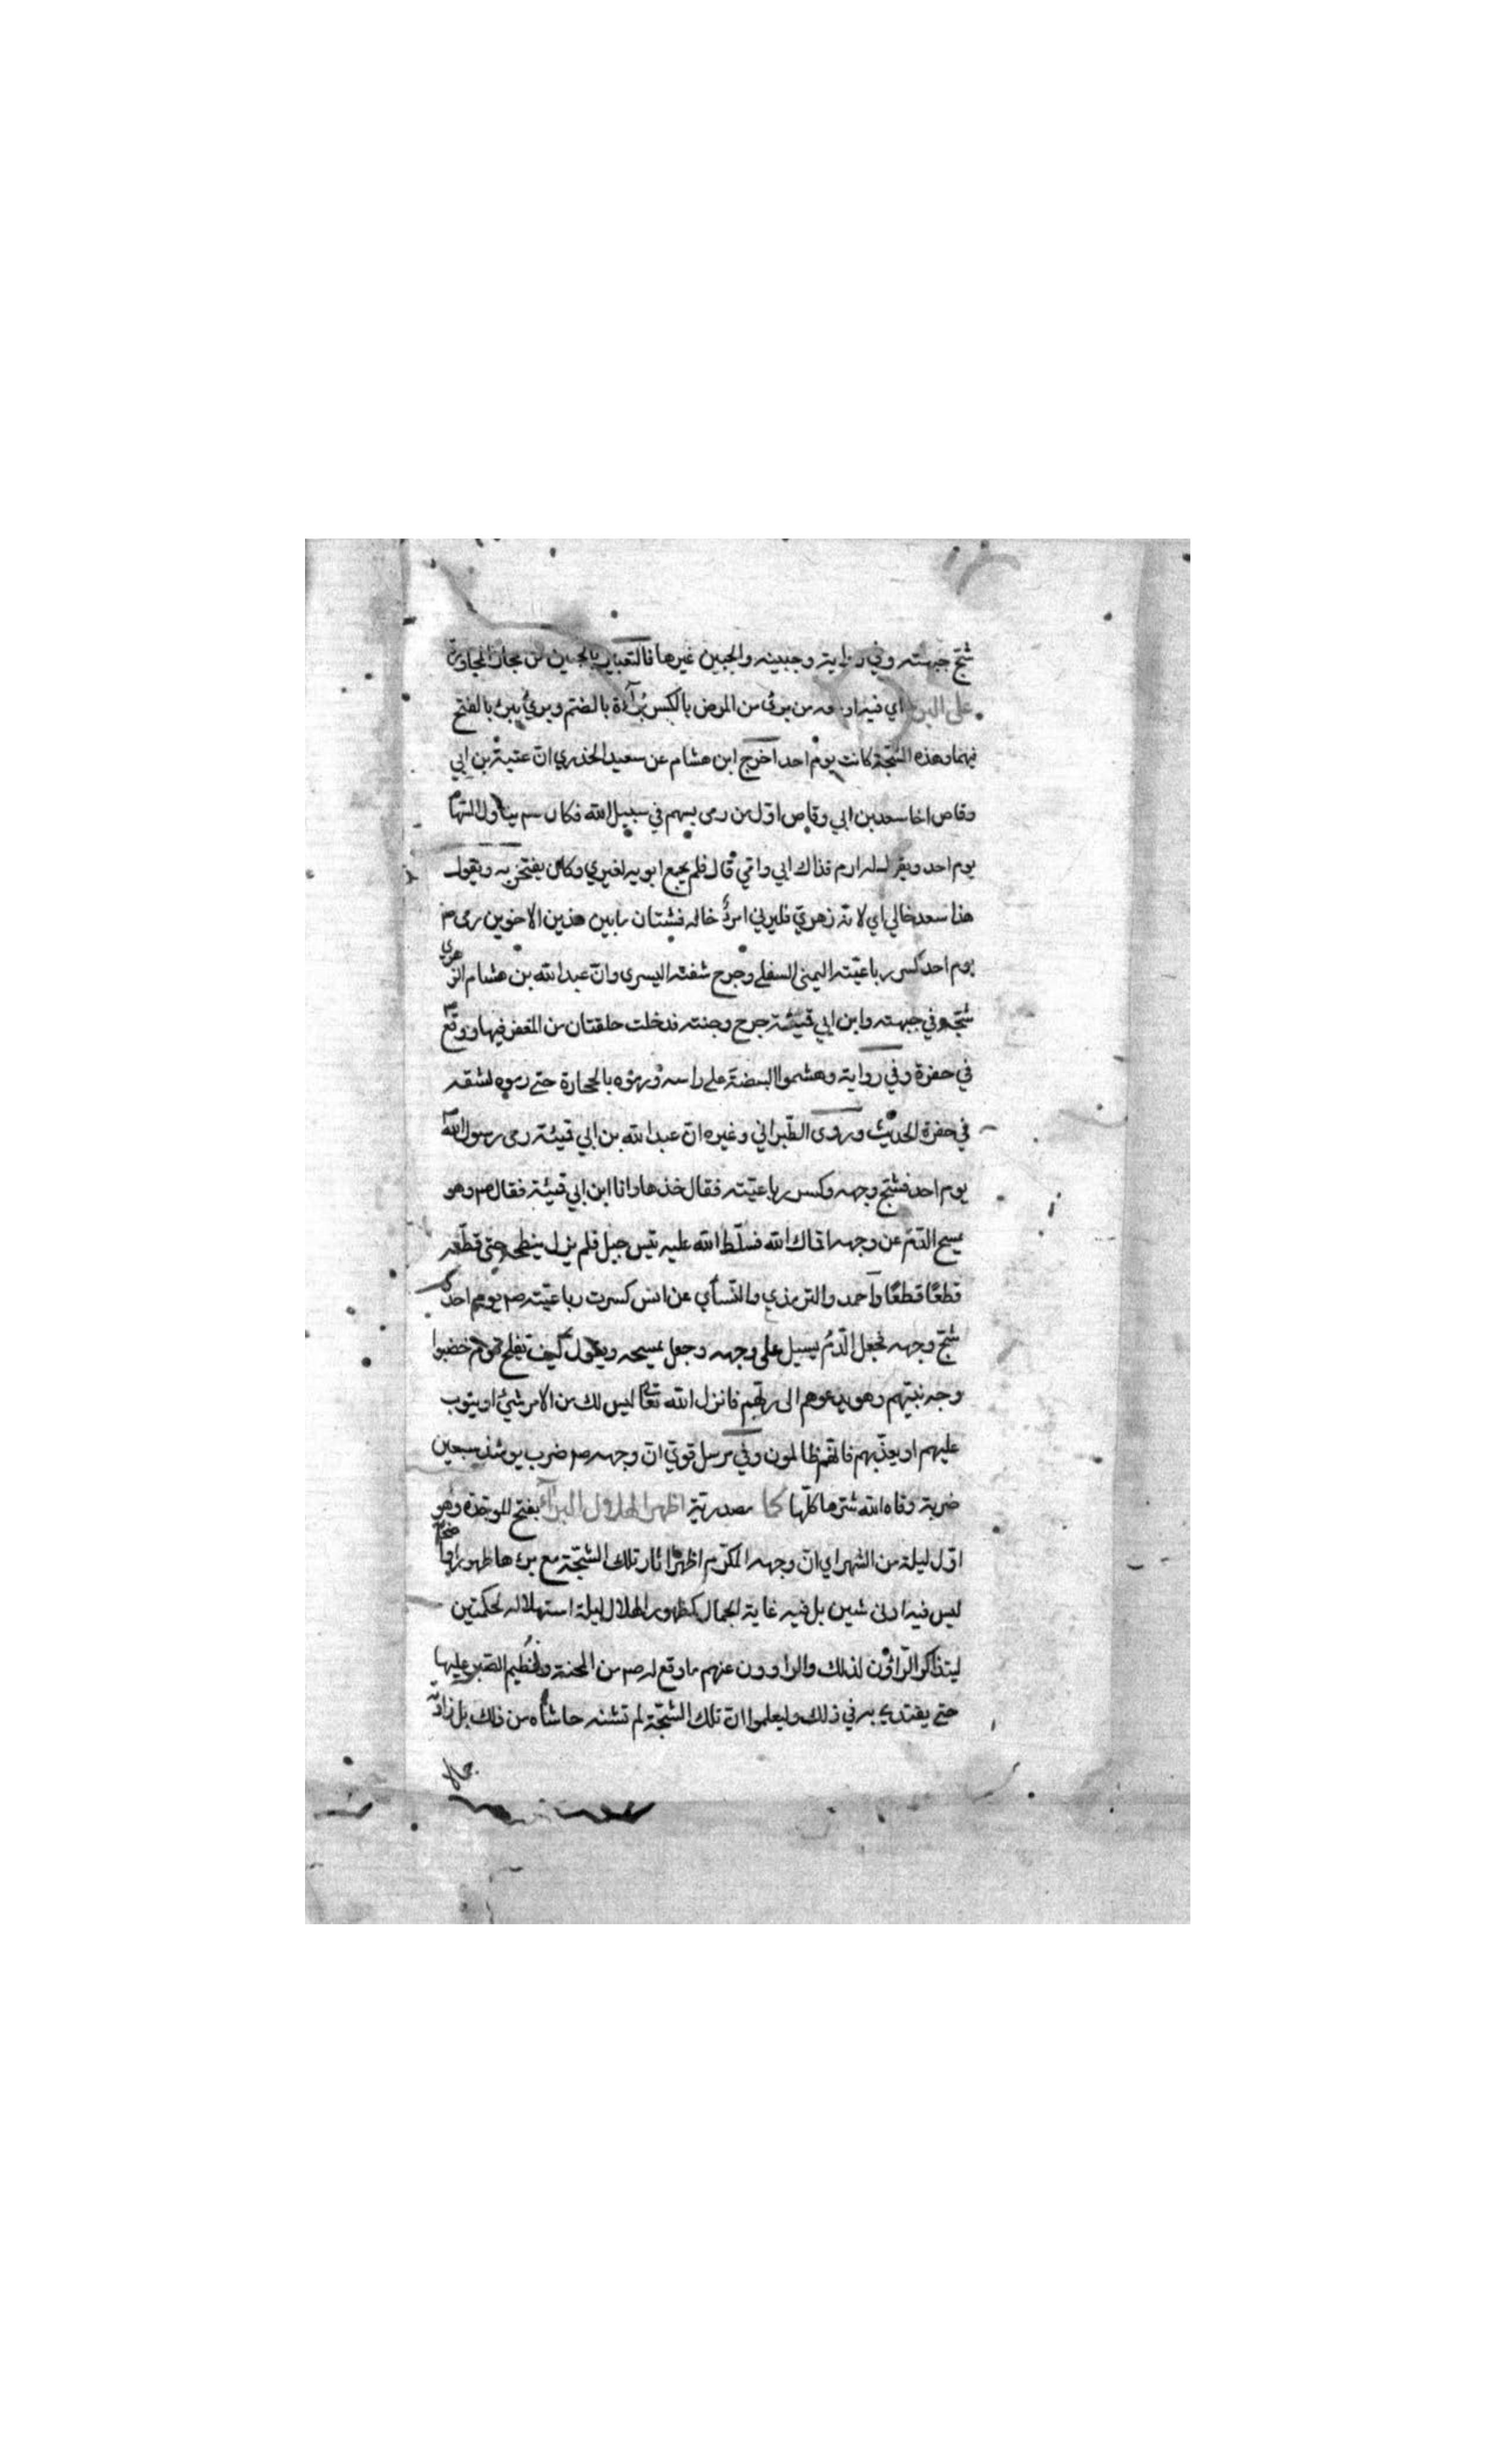 شج جبهته وفي رواية وجبينه والجبين غيرها فالتعبير بالجبين من مجاز المجاورة
على البرء اي فيه او من برئ من المرض بالكسر برأة بالضم وبرئ يبرئ بالفتح
فيهما وهذه الشجة كانت يوم احد اخرج ابن هشام عن سعيد الخذري ان عتبة بن ابي
وقاص اخا سعد بن ابي وقاص اول من رمى بسهم في سبيل الله فكان يناوله السهام
يوم احد ويقول له ارم فداك ابي وامي قال فلم يجمع ابويه لغيري وكان يفتخر به ويقول
هذا سعد خالي اي لانه زهري فليرني امرئ خاله فشتان ما بين هذين الاخوين رمى
يوم احد كسر رباعيته اليمنى السفلى وجرح شفته اليسرى وان عبد الله بن هشام الزهري
شجه في جبهته وابن ابي قميئة جرح وجنته فدخلت حلقتان من المغفر فيها ووقع
في حفرة وفي رواية وهشموا البيضة على راسه ورموه بالحجارة حتى رموه لشقه
في حفرة الحديث وروى الطبراني وغيره ان عبد الله بن ابي قميئة رمى رسول الله
يوم احد فشج وجهه وكسر رباعيته فقال خذها وانا ابن ابي قميئة فقال صم وهو
يمسح الدم عن وجهه اقماك الله فسلط الله عليه تيس جبل فلم يزل ينطحه حتى قطعه
قطعًا قطعًا واحمد والترمذي والنسأي عن انس كسرت رباعيته صم يوم احد
شج وجهه فجعل الدم يسيل على وجهه وجعل يمسحه ويقول كيف يفلح قوم خضبوا
وجه نبيهم وهو يدعوهم الى ربهم فانزل الله تعالى ليس لك من الامر شيئ او يتوب
عليهم او يعذبهم فانهم ظالمون وفي مرسل قوي ان وجهه صم ضرب يومئذ سبعين
ضربة وقاه الله شرها كلها كما مصدرية اظهر الهلال البرآء بفتح الموحدة وهو
اول ليلة من الشهر اي ان وجهه المكرم اظهر اثار تلك الشجة مع برءها ظهورا واضحا
ليس فيه ادنى شين بل فيه غاية الجمال كظهور الهلال ليلة استهلاله لحكمتين
ليتذاكر الراؤن لذلك والراوون عنهم ما وقع له صم من المحنة وعظيم الصبر عليها
حتى يقتدي به في ذلك وليعلموا ان تلك الشجة لم تشنه حاشاه من ذلك بل زادته